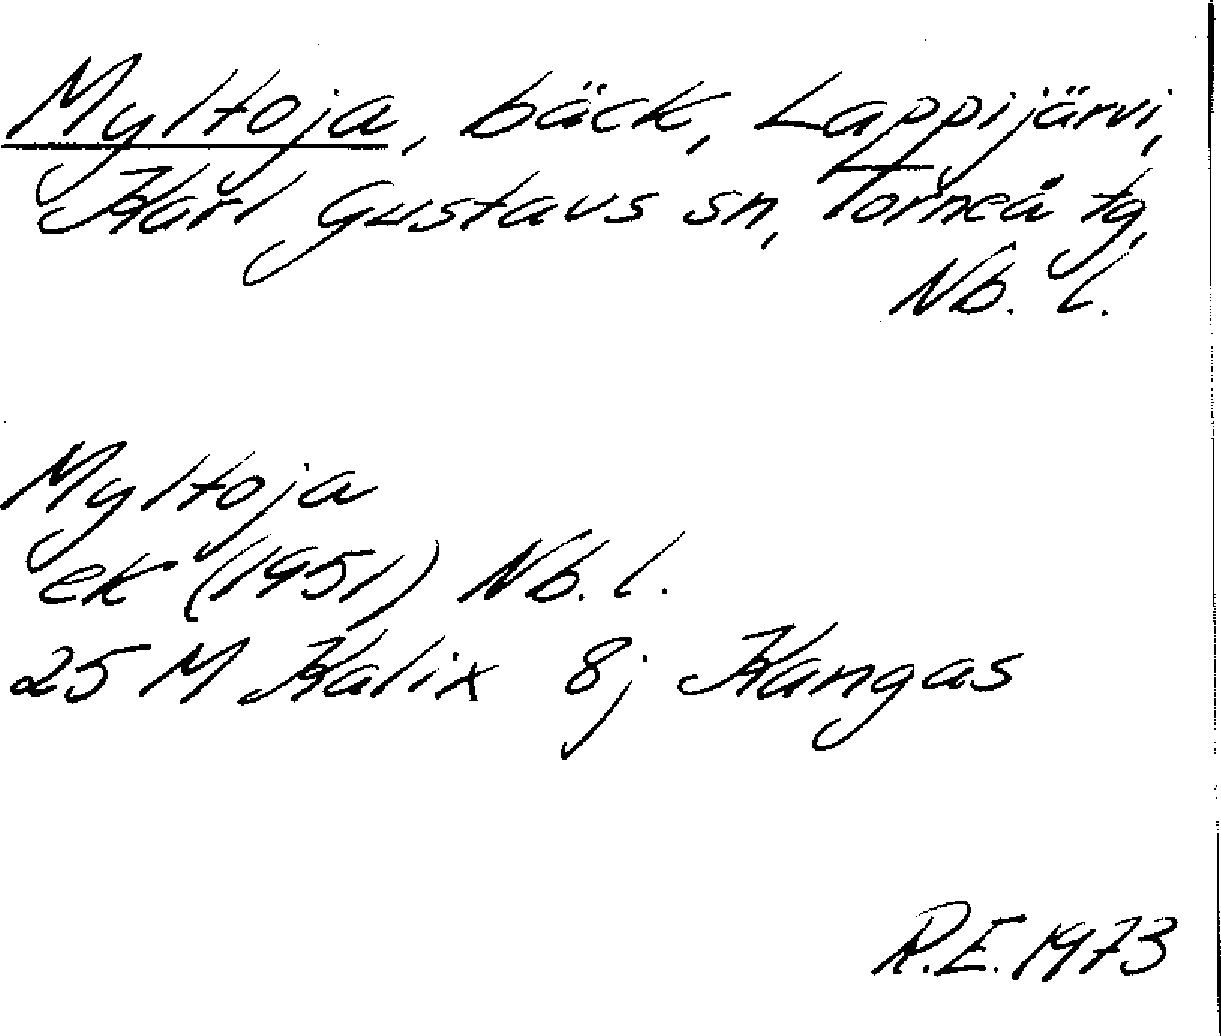 Myltoja, bäck, Lappijärvi,
Karl Gustavs sn, Torneå tg,
Nb. l.
Myltoja
ek (1951) Nb. l.
25 M Kalix 8; Kangas
R.E. 1973